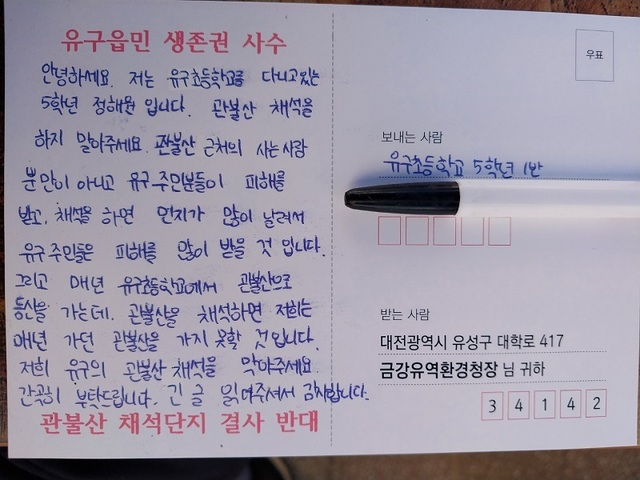 유구읍민 생존권 사수
안녕하세요. 저는 유구초등학교를 다니고있는
5학년 정해원 입니다. 관불산 채석을
하지 말아주세요. 관불산 근처의 사는사람
뿐만이 아니고 유구 주민분들이 피해를
받고, 채석을 하면 먼지가 많이 날려서
유구주민들은 피해를 많이 받을 것 입니다.
그리고 매년 유구초등학교에서 관불산으로
등산을 가는데. 관불산을 채석하면 저희는
매년 가던 관불산을 가지 못할 것입니다.
저희 유구의 관불산 채석을 막아주세요
간곡히 부탁드립니다. 긴 글 읽어주셔서 감사합니다.
관불산 채석단지 결사 반대
우표
보내는 사람
유구초등학교 5학년 1반
받는 사람
대전광역시 유성구 대학로 417
금강유역환경청장 님 귀하
3 4 1 4 2